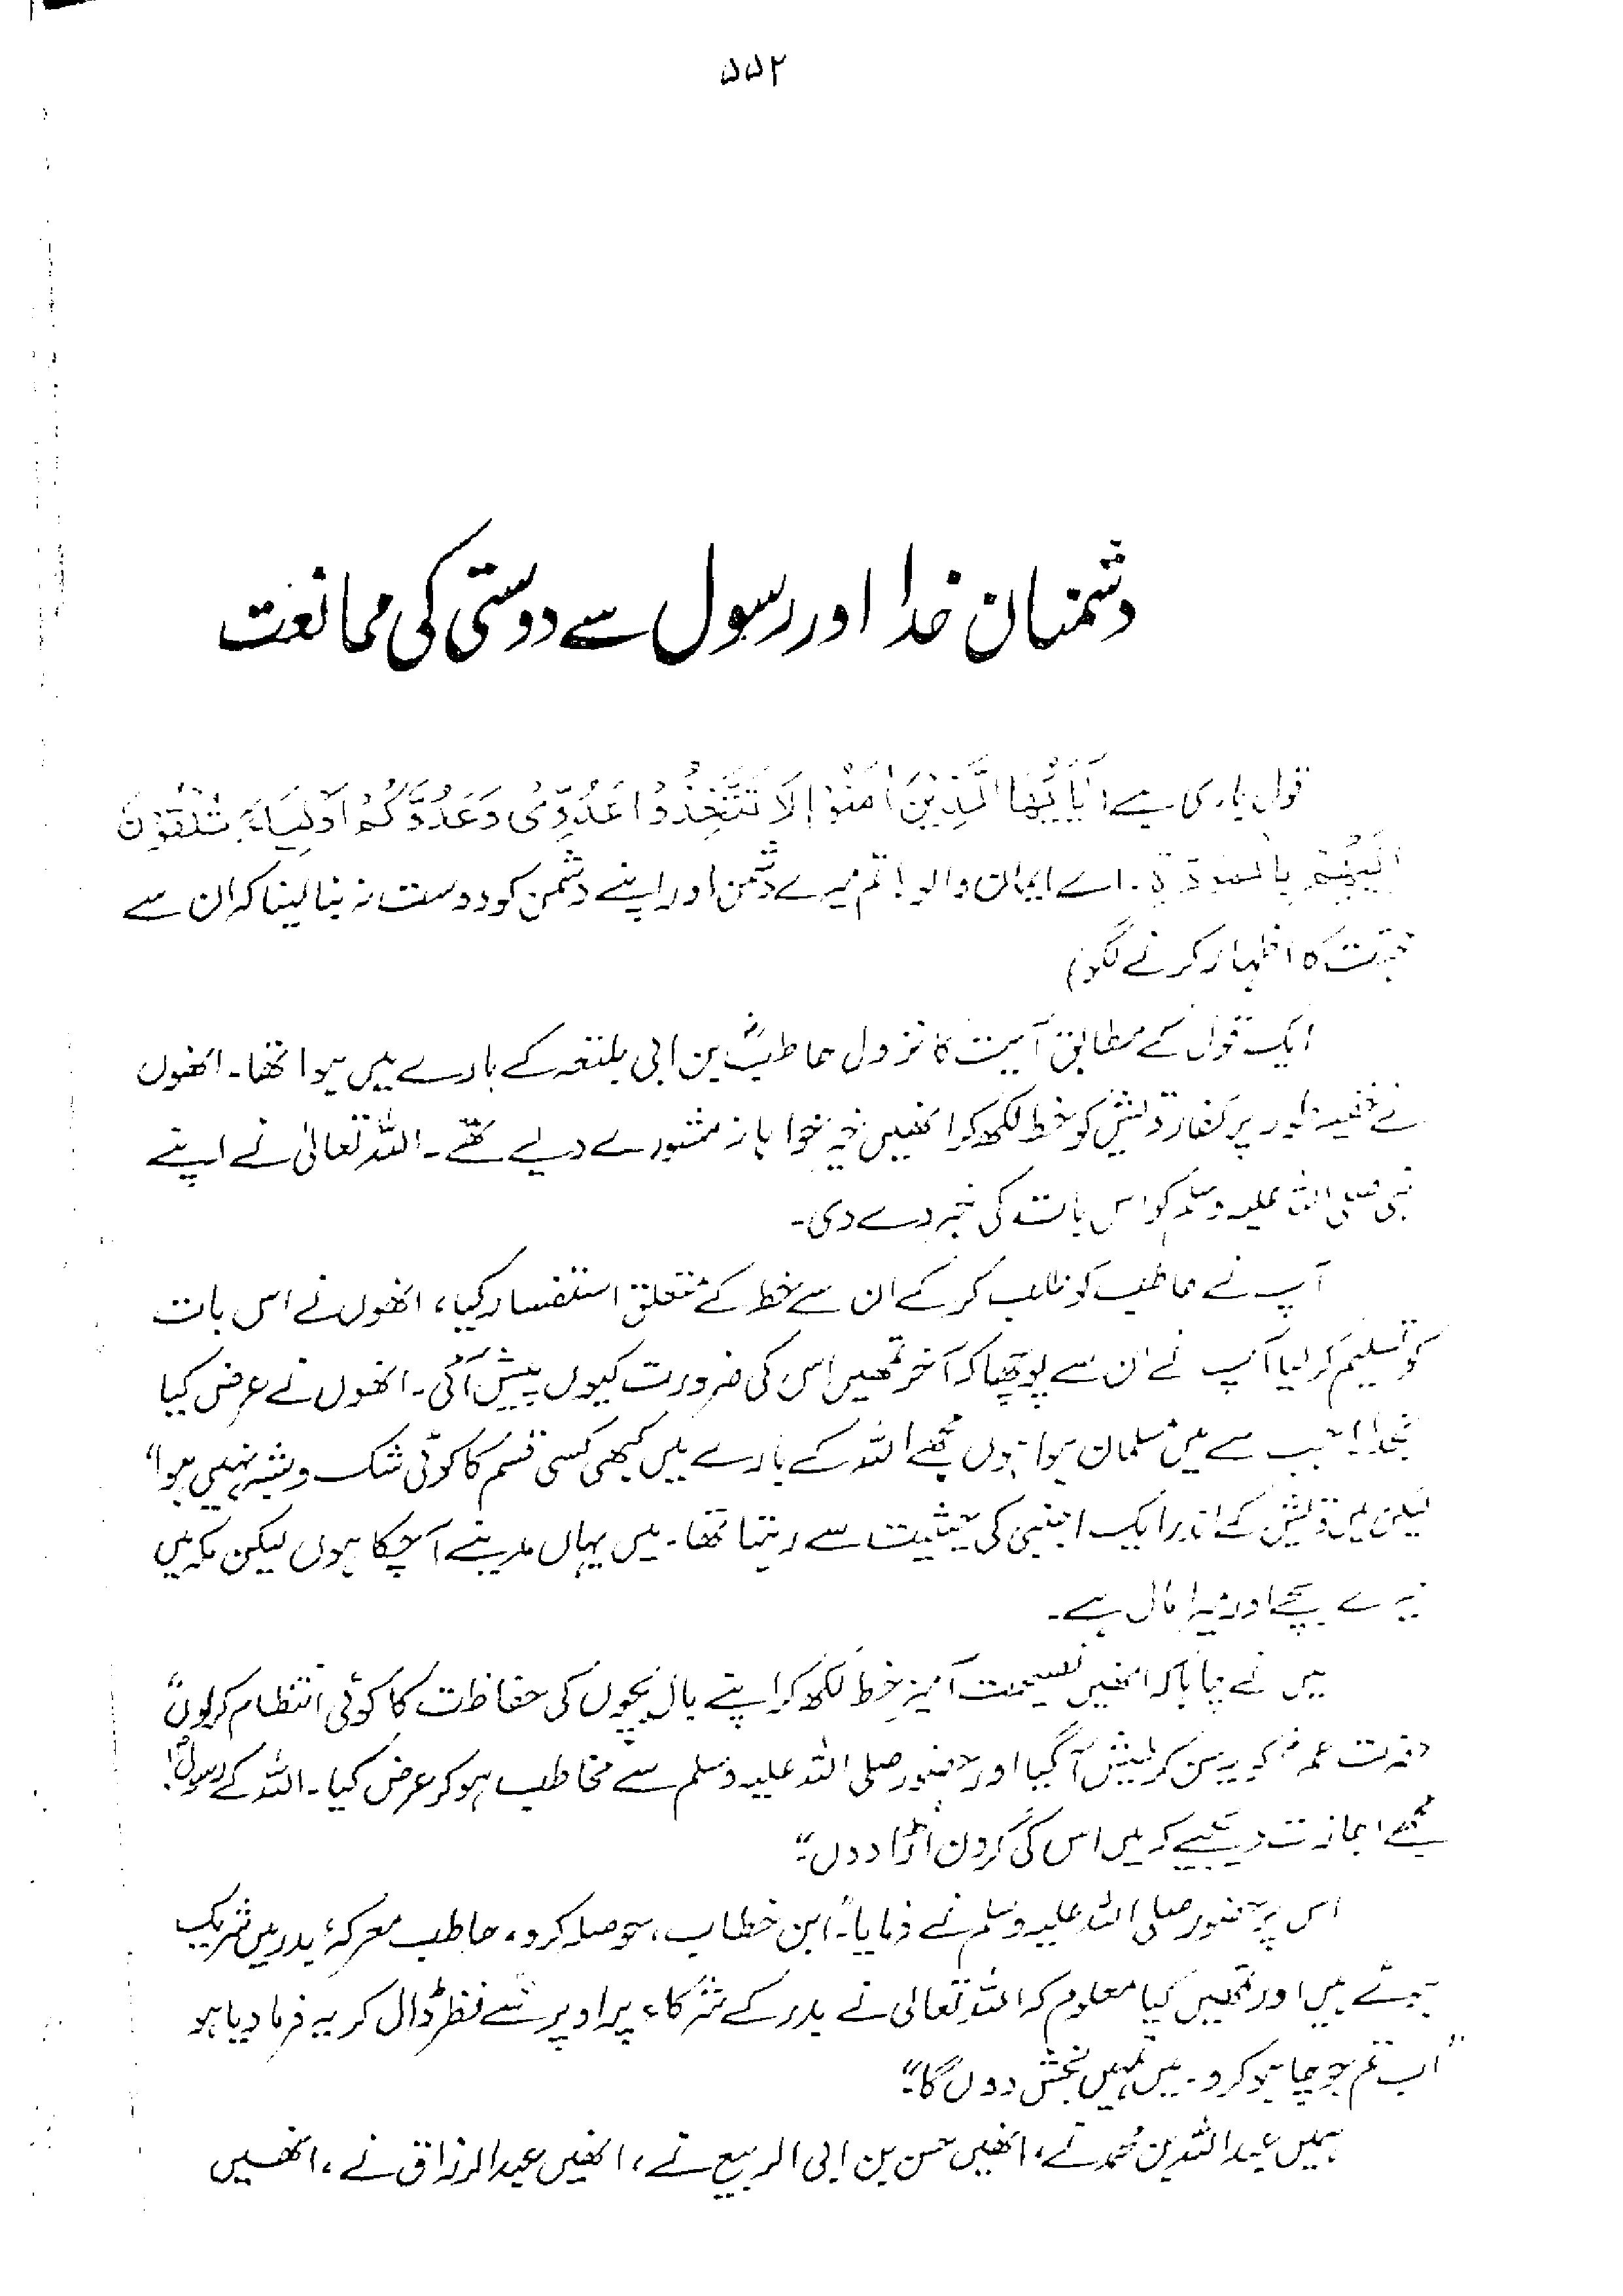 ۵۵۲
دشمنان خدا اور رسول سے دوستی کی ممانعت
قول باری ہے: (يَا أَيُّهَا الَّذِيْنَ اٰمَنُوْا لَا تَتَّخِذُوْا عَدُوِّىْ وَعَدُوَّكُمْ اَوْلِيَاءَ تُلْقُوْنَ
اِلَيْهِمْ بِالْمَوَدَّةِ۔ اے ایمان والو! تم میرے دشمن اور اپنے دشمن کو دوست نہ بنا لینا کہ ان سے
محبت کا اظہار کرنے لگو)
ایک قول کے مطابق آیت کا نزول حاطبؓ بن ابی بلتعہ کے بارے میں ہوا تھا۔ انھوں
نے خفیہ طور پر کفار قریش کو خط لکھ کر انھیں خیر خواہانہ مشورے دیے تھے۔ اللہ تعالیٰ نے اپنے
نبی صلی اللہ علیہ وسلم کو اس بات کی خبر دے دی۔
آپ نے حاطب کو طلب کر کے ان سے خط کے متعلق استفسار کیا، انھوں نے اس بات
کو تسلیم کر لیا آپ نے ان سے پوچھا کہ آخر تمھیں اس کی ضرورت کیوں پیش آئی۔ انھوں نے عرض کیا
بخدا! جب سے میں مسلمان ہوا ہوں مجھے اللہ کے بارے میں کبھی کسی قسم کا کوئی شک و شبہ نہیں ہوا"
لیکن میں قریش کے اندر ایک اجنبی کی حیثیت سے رہتا تھا۔ میں یہاں مدینے آ چکا ہوں لیکن مکہ میں
میرے بچے اور میرا مال ہے۔
میں نے چاہا کہ انھیں نصیحت آمیز خط لکھ کر اپنے بال بچوں کی حفاظت کا کوئی انتظام کر لوں"
حضرت عمرؓ کو یہ سن کر طیش آگیا اور حضور صلی اللہ علیہ وسلم سے مخاطب ہو کر عرض کیا۔ اللہ کے رسولؐ!
مجھے اجازت دیجیے کہ میں اس کی گردن اڑا دوں"۔
اس پر حضور صلی اللہ علیہ وسلم نے فرمایا"۔ ابن خطاب، حوصلہ کرو، حاطب معرکۂ بدر میں شریک
ہوئے ہیں اور تمھیں کیا معلوم کہ اللہ تعالیٰ نے بدر کے شرکاء پر اوپر سے نظر ڈال کر یہ فرما دیا ہو
"اب تم جو چاہو کرو۔ میں تمہیں بخش دوں گا"۔
ہمیں عبداللہ بن محمد نے، انھیں حسن بن ابی الربیع نے، انھیں عبدالرزاق نے، انھیں